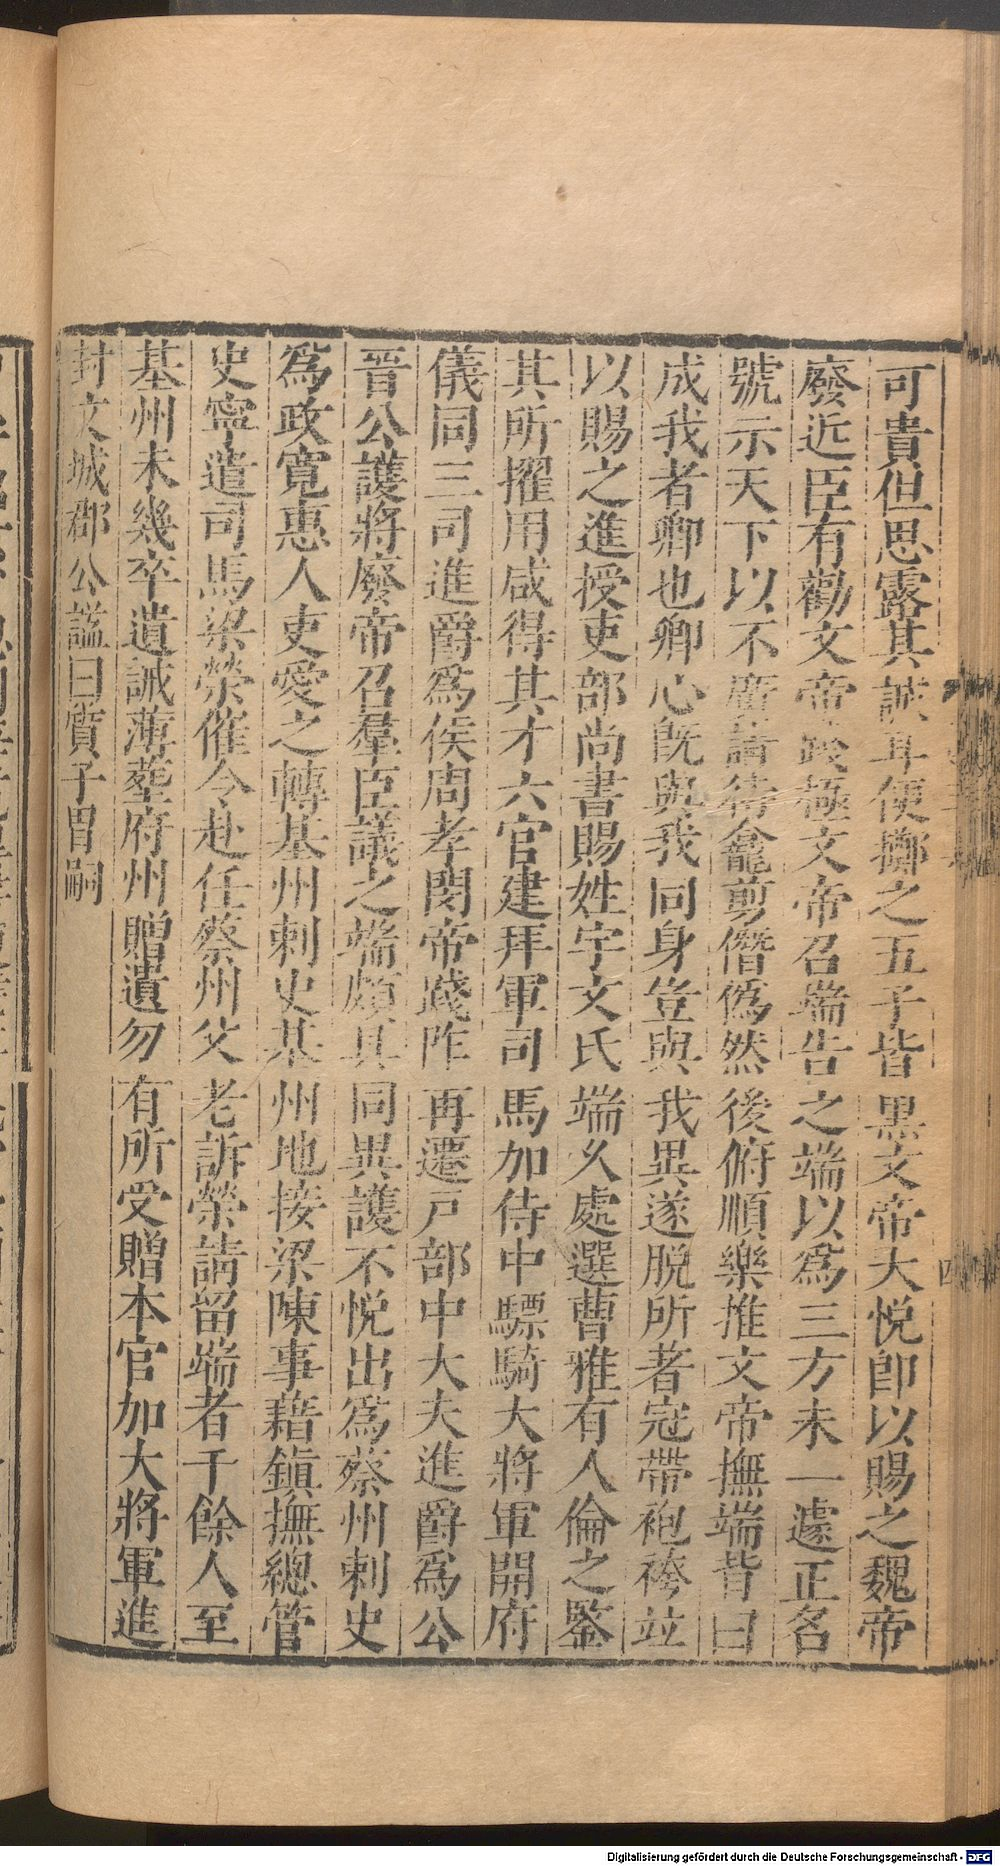 可貴但思露其誠耳便擲之五子皆黑文帝大悅卽以賜之魏帝
廢近臣有勸文帝踐極文帝召端告之端以爲三方未一遽正名
號示天下以不廣請待龕剪僭僞然後俯順樂推文帝撫端背曰
成我者卿也卿心旣與我同身豈與我異遂脫所著冠帶袍袴竝
以賜之進授吏部尚書賜姓宇文氏端久處選曹雅有人倫之鑒
其所擢用咸得其才六官建拜軍司馬加侍中驃騎大將軍開府
儀同三司進爵爲侯周孝閔帝踐阼再遷戸部中大夫進爵爲公
晉公護將廢帝召羣臣議之端頗具同異護不悅出爲蔡州刺史
爲政寬惠人吏愛之轉基州刺史基州地接梁陳事藉鎮撫總管
史寧遣司馬梁榮催令赴任蔡州父老訴榮請留端者千餘人至
基州未幾卒遺誡薄葬府州贈遺勿有所受贈本官加大將軍進
封文城郡公諡曰質子胄嗣
四
Digitalisierung gefördert durch die Deutsche Forschungsgemeinschaft - DFG